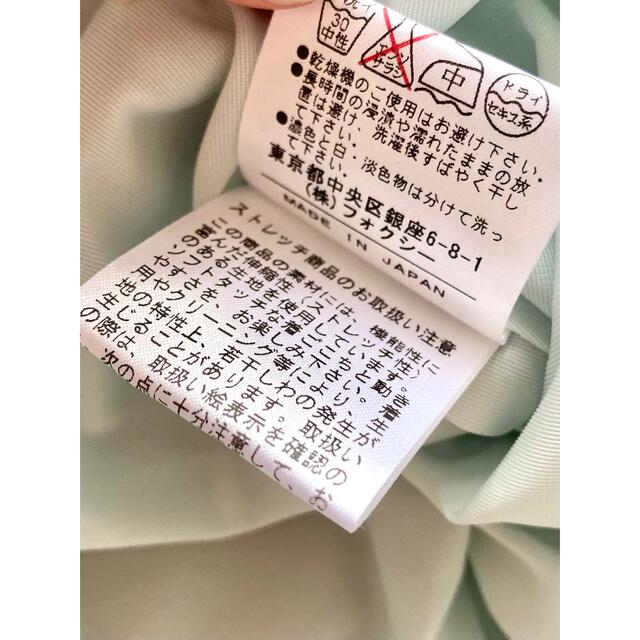 30
中性
エンソ
サラシ
中
ドライ
セキユ系
●乾燥機のご使用はお避け下さい。
●長時間の浸漬や濡れたままの放
置は避け、洗濯後すばやく干し
て下さい。
●濃色と白・淡色物は分けて洗っ
て下さい。
東京都中央区銀座6-8-1
(株)フォクシー
MADE IN JAPAN
ストレッチ商品のお取扱い注意
この商品の素材には、機能性に
富んだ伸縮性(ストレッチ性)
のある生地を使用しています。
ソフトタッチな着ごこちと動き
やすさを、お楽しみ下さい。着
用やクリーニング等により、生
地の特性上、若干しわの発生が
生じることがあります。取扱い
の際は、取扱い絵表示を確認の
次の点に十分注意して、お